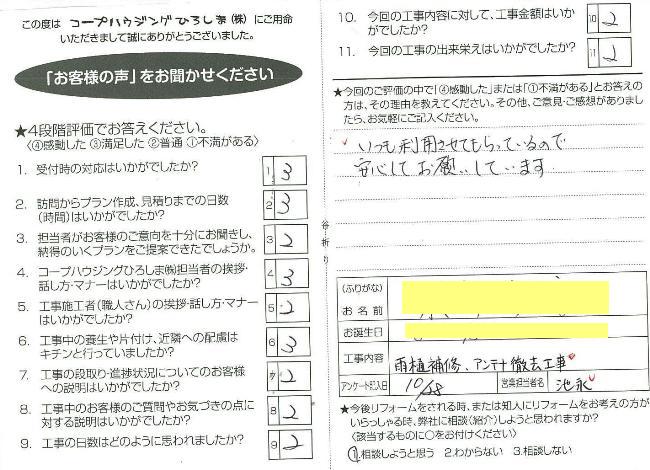 この度は コープハウジングひろしま(株) にご用命
いただきまして誠にありがとうございました。
「お客様の声」をお聞かせください
★4段階評価でお答えください。
〈④感動した ③満足した ②普通 ①不満がある〉
1. 受付時の対応はいかがでしたか?
1 3
2. 訪問からプラン作成、見積りまでの日数
(時間)はいかがでしたか?
2 3
3. 担当者がお客様のご意向を十分にお聞きし、
納得のいくプランをご提案できたでしょうか。
3 2
4. コープハウジングひろしま㈱担当者の挨拶・
話し方・マナーはいかがでしたか?
4 3
5. 工事施工者(職人さん)の挨拶・話し方・マナー
はいかがでしたか?
5 2
6. 工事中の養生や片付け、近隣への配慮は
キチンと行っていましたか?
6 3
7. 工事の段取り・進捗状況についてのお客様
への説明はいかがでしたか?
7 2
8. 工事中のお客様のご質問やお気づきの点に
対する説明はいかがでしたか?
8 2
9. 工事の日数はどのように思われましたか?
9 2
谷折り
10. 今回の工事内容に対して、工事金額はいか
がでしたか?
10 2
11. 今回の工事の出来栄えはいかがでしたか?
11 2
★今回のご評価の中で「④感動した」または「①不満がある」とお答え
の方は、その理由を教えてください。その他、ご意見・ご感想がありまし
たら、お気軽にご記入ください。
いつも利用させてもらっているので
安心してお願いしています
(ふりがな)
お名前
お誕生日
工事内容 雨樋補修、アンテナ撤去工事
アンケート記入日 10/28 営業担当者名 池永
★今後リフォームをされる時、または知人にリフォームをお考えの方が
いらっしゃる時、弊社に相談(紹介)しようと思われますか?
〈該当するものに○をお付けください〉
1.相談しようと思う 2.わからない 3.相談しない